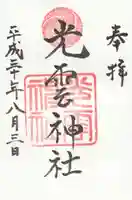 奉拝
光雲神社
平成三十年八月三日